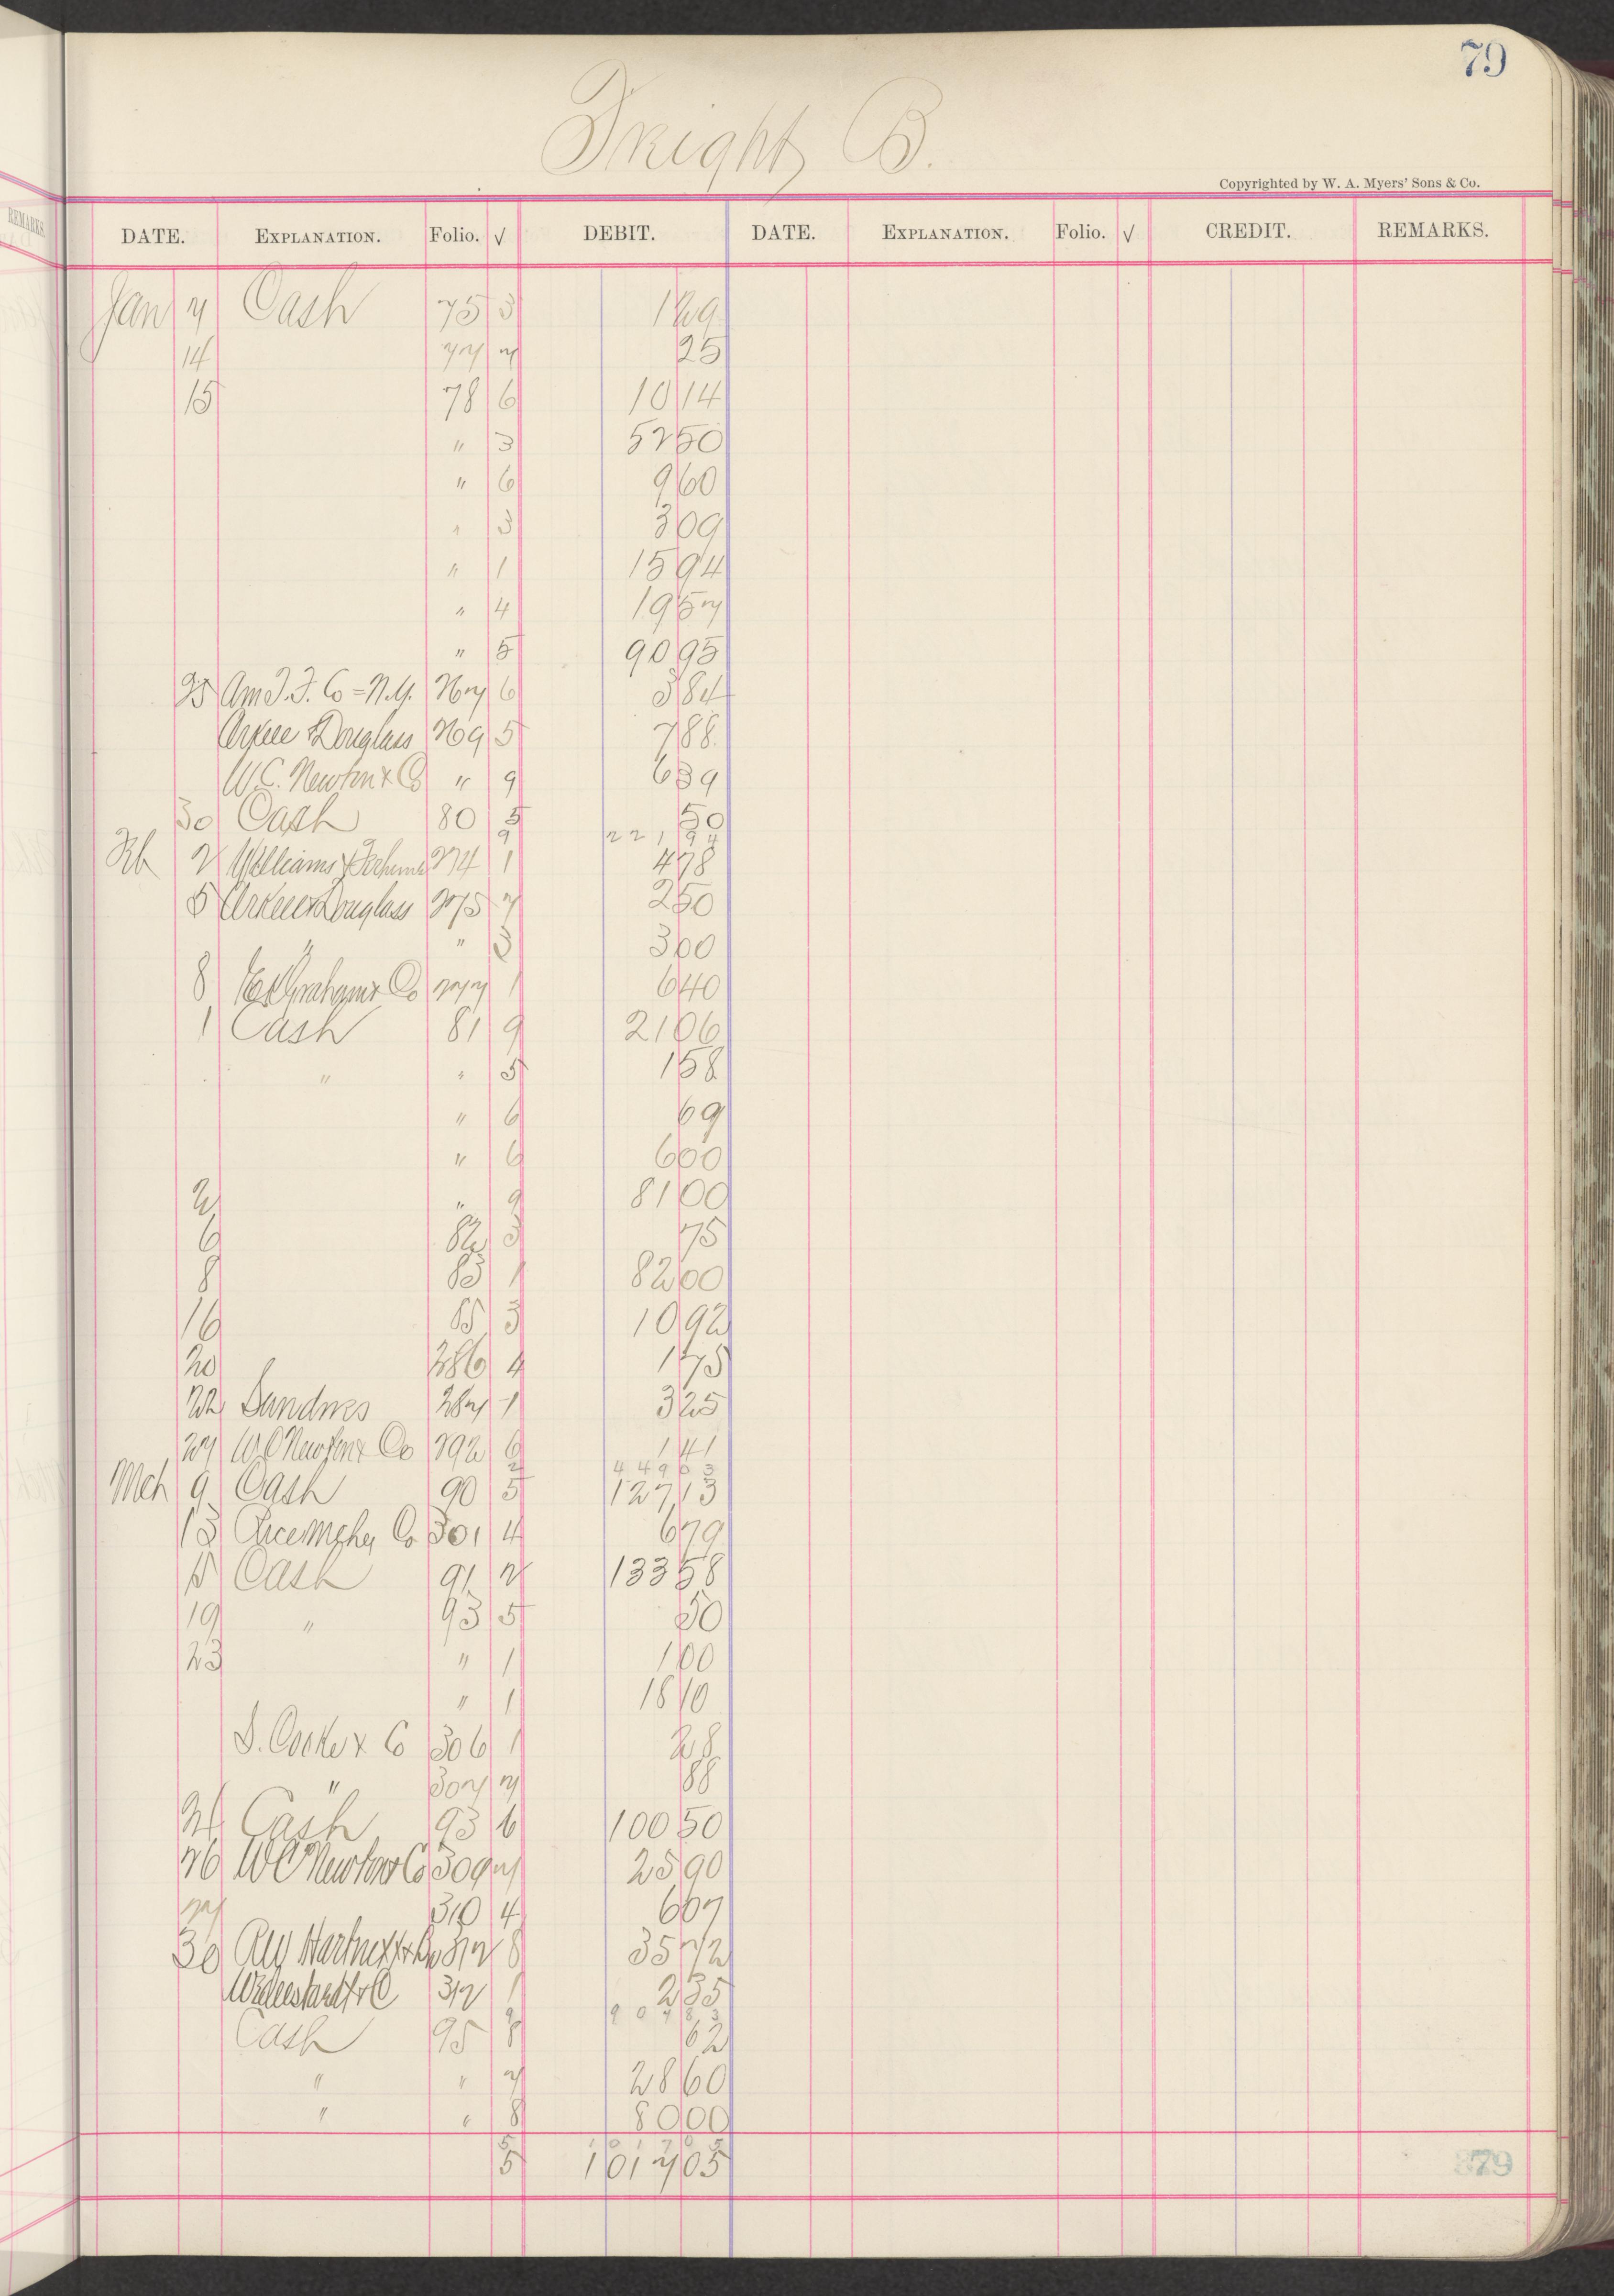 79
Freight B.
Copyrighted by W. A. Myers' Sons & Co.
REMARKS.
DATE. EXPLANATION. Folio. √ DEBIT. DATE. EXPLANATION. Folio. √ CREDIT. REMARKS.
Jan 7 Cash 75 3 129
14 77 7 25
15 78 6 10 14
" 3 52 50
" 6 9 60
" 3 3 09
" 1 15 94
" 4 19 57
" 5 90 95
25 Am T. F. Co = N.Y. 267 6 3 84
Arkell & Douglass 269 5 7 88
W.C. Newton & Co " 9 6 39
30 Cash 80 5 50
9 22 1 94
Feb 2 Williams & 274 1 4 78
5 Arkell & Douglass 275 7 2 50
" 3 3 00
8 Graham & Co 277 1 6 40
1 Cash 81 9 21 06
" " 5 1 58
" 6 69
" 6 6 00
2 " 9 81 00
6 82 3 75
8 83 1 82 00
16 85 3 10 92
20 286 4 1 75
22 Sundries 287 1 3 25
27 W C Newton & Co 292 6 1 41
2 449 63
Mch 9 Cash 90 5 127 13
13 Co 301 4 6 79
15 Cash 91 2 133 58
19 " 93 5 50
23 " 1 1 00
" 1 18 10
S. Co 306 1 28
" 307 7 88
24 Cash 93 6 100 50
26 W C Newton Co 309 7 25 90
27 310 4 6 07
30 312 8 35 72
312 1 2 35
9 907 83
Cash 95 8 62
" " 7 28 60
" " 8 80 00
5 1017 05
379